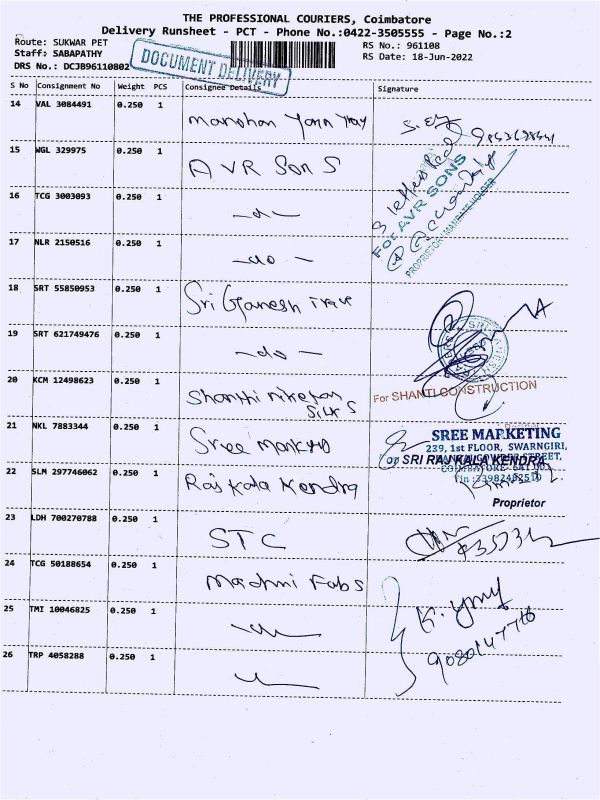 THE PROFESSIONAL COURIERS, Coimbatore
Delivery Runsheet - PCT - Phone No.:0422-3505555 - Page No.:2
Route: SUKWAR PET
RS No.: 961108
Staff: SABAPATHY
RS Date: 18-Jun-2022
DRS No.: DCJB96110802
DOCUMENT DELIVERY
S No Consignment No Weight PCS Consignee Details Signature
14 VAL 3084491 0.250 1
Manohar
15 WGL 329975 0.250 1
AVR Sons
3 letters Rcd
For AVR SONS
PROPRIETOR / MANDATE HOLDER
16 TCG 3003093 0.250 1
17 NLR 2150516 0.250 1
- do -
18 SRT 55850953 0.250 1
Sri Ganesh
19 SRT 621749476 0.250 1
- do -
20 KCM 12498623 0.250 1
Shanthi niketan
Silks
For SHANTI CONSTRUCTION
21 NKL 7883344 0.250 1
Sree
SREE MARKETING
239, 1st FLOOR, SWARNGIRI,
For SRI RAJ KALA KENDRA
Proprietor
22 SLM 297746062 0.250 1
Raj Kala Kendra
23 LDH 700270788 0.250 1
STC
24 TCG 50188654 0.250 1
Fabs
25 TMI 10046825 0.250 1
26 TRP 4058288 0.250 1